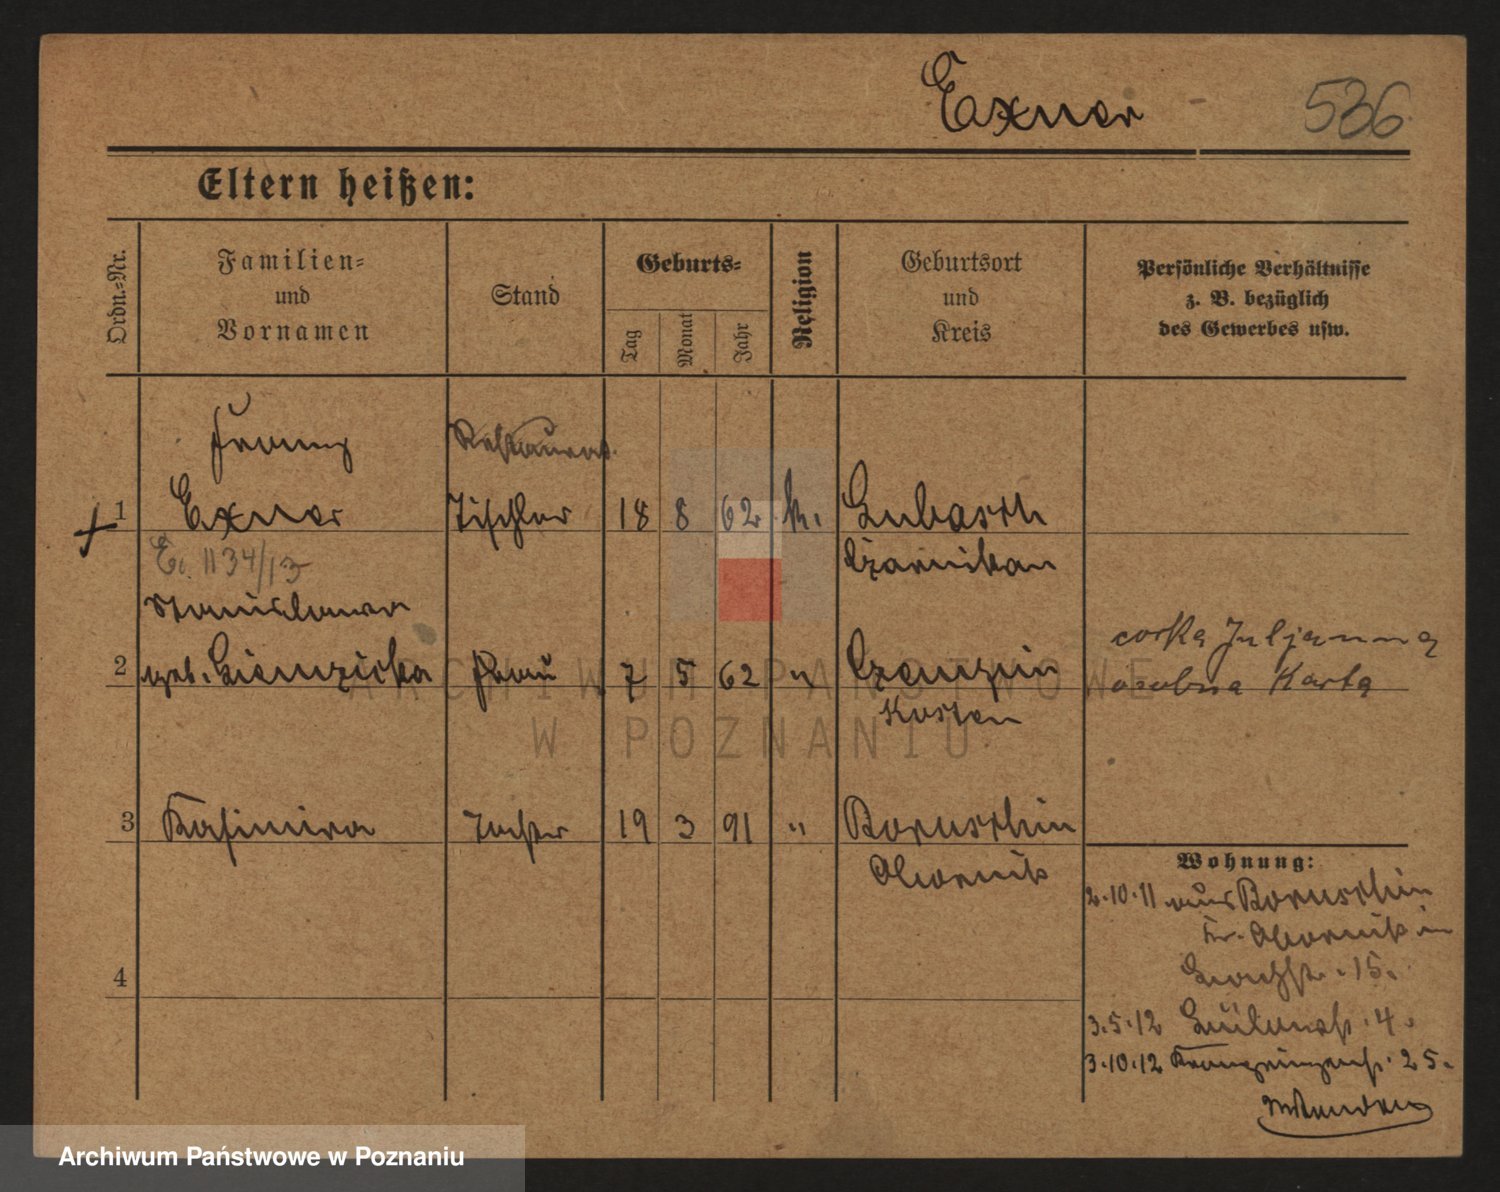 Exner 536
Eltern heißen:
Ordn.-Nr.
Familien-
und
Vornamen
Stand
Geburts-
Tag
Monat
Jahr
Religion
Geburtsort
und
Kreis
Persönliche Verhältnisse
z. B. bezüglich
des Gewerbes usw.
Franz Restaurat.
1 Exner Tischler 18 8 62 k. Lubasch
Czarnikau
E. 1134/13
Stanislawa
2 geb. Frau 7 5 62 " Czempin
Kosten
corka Juljanna
osobna Karta
3 Kasimira Tochter 19 3 91 " Boruschin
Obornik
4
Wohnung:
2.10.11 aus Boruschin
Kr. Obornik in
15.
3.5.12 4.
3.10.12 Kronprinzenst. 25.
ARCHIWUM PAŃSTWOWE
W POZNANIU
Archiwum Państwowe w Poznaniu